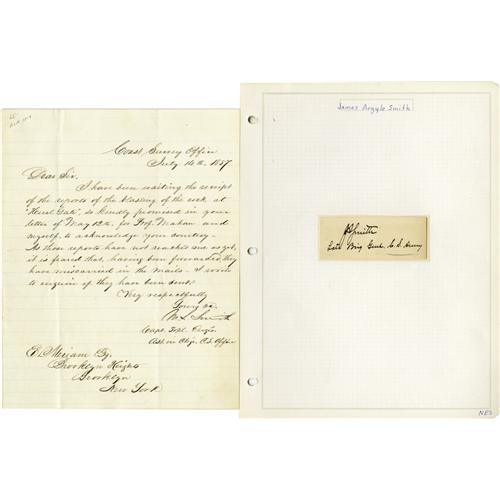 Coast Survey Office
July 14th, 1857
Dear Sir,
I have been waiting the receipt
of the reports of the blasting of the rock at
"Heral Gate", so kindly promised in your
letter of May 12th, for Prof. Mahan and
myself, to acknowledge your courtesy -
As those reports have not reached me as yet,
it is feared that, having been forwarded, they
have miscarried in the mails - I write
to enquire if they have been sent.
Very respectfully
Yours &c.
M. L. Smith
Capt. Topl. Engrs.
Asst. in Chge. C.S. Office
E. Meriam Esq.
Brooklyn Heights
Brooklyn
New York
James Argyle Smith
JASmith
Late Brig Genl. C. S. Army
NES